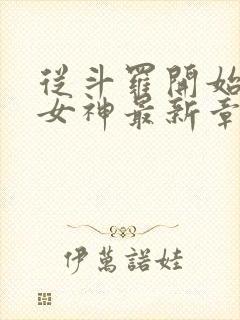 從斗羅開始
女神最新章
伊萬諾娃